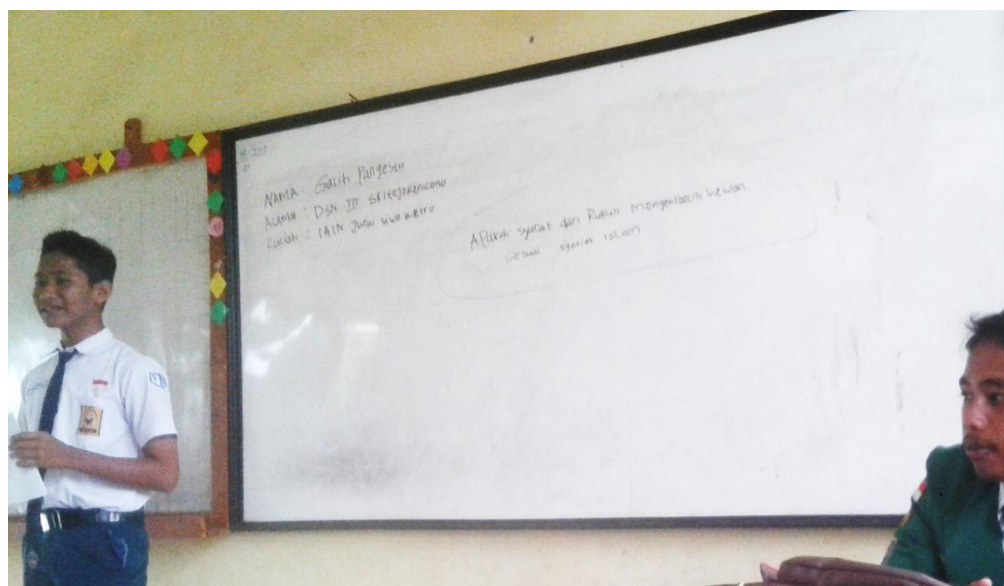 NAMA : Galih Pangestu
Alamat : DSN III Sritejokencono
Kuliah : IAIN Jurai siwo metro
Apakah syariat dan Rukun Menyembelih hewan
sesuai syariat islam